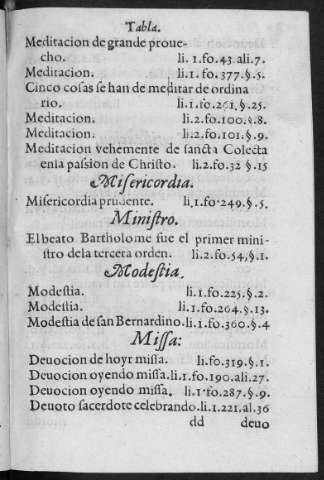 Tabla.
Meditacion de grande proue-
cho. li. 1. fo. 43. ali. 7.
Meditacion. li. 1. fo. 377. §. 5.
Cinco cosas se han de meditar de ordina
rio. li. 1. fo. 261. §. 25.
Meditacion. li. 2. fo. 100. §. 8.
Meditacion. li. 2. fo. 101. §. 9.
Meditacion vehemente de sancta Colecta
en la passion de Christo. li. 2. fo. 32 §. 15
Misericordia.
Misericordia prudente. li, 1. fo. 249. §. 5.
Ministro.
El beato Bartholome fue el primer mini-
stro de la tercera orden. li. 2. fo. 54, §. 1.
Modestia.
Modestia. li. 1. fo. 225. §. 2.
Modestia. li. 1. fo. 264. §. 13.
Modestia de san Bernardino. li. 1. fo. 360. §. 4
Missa:
Deuocion de hoyr missa. li. fo. 319. §. 1.
Deuocion oyendo missa. li. 1. fo. 190. ali. 27.
Deuocion oyendo missa. li. 1. fo. 287. §. 9.
Deuoto sacerdote celebrando. li. 1. 221. al. 36
dd deuo